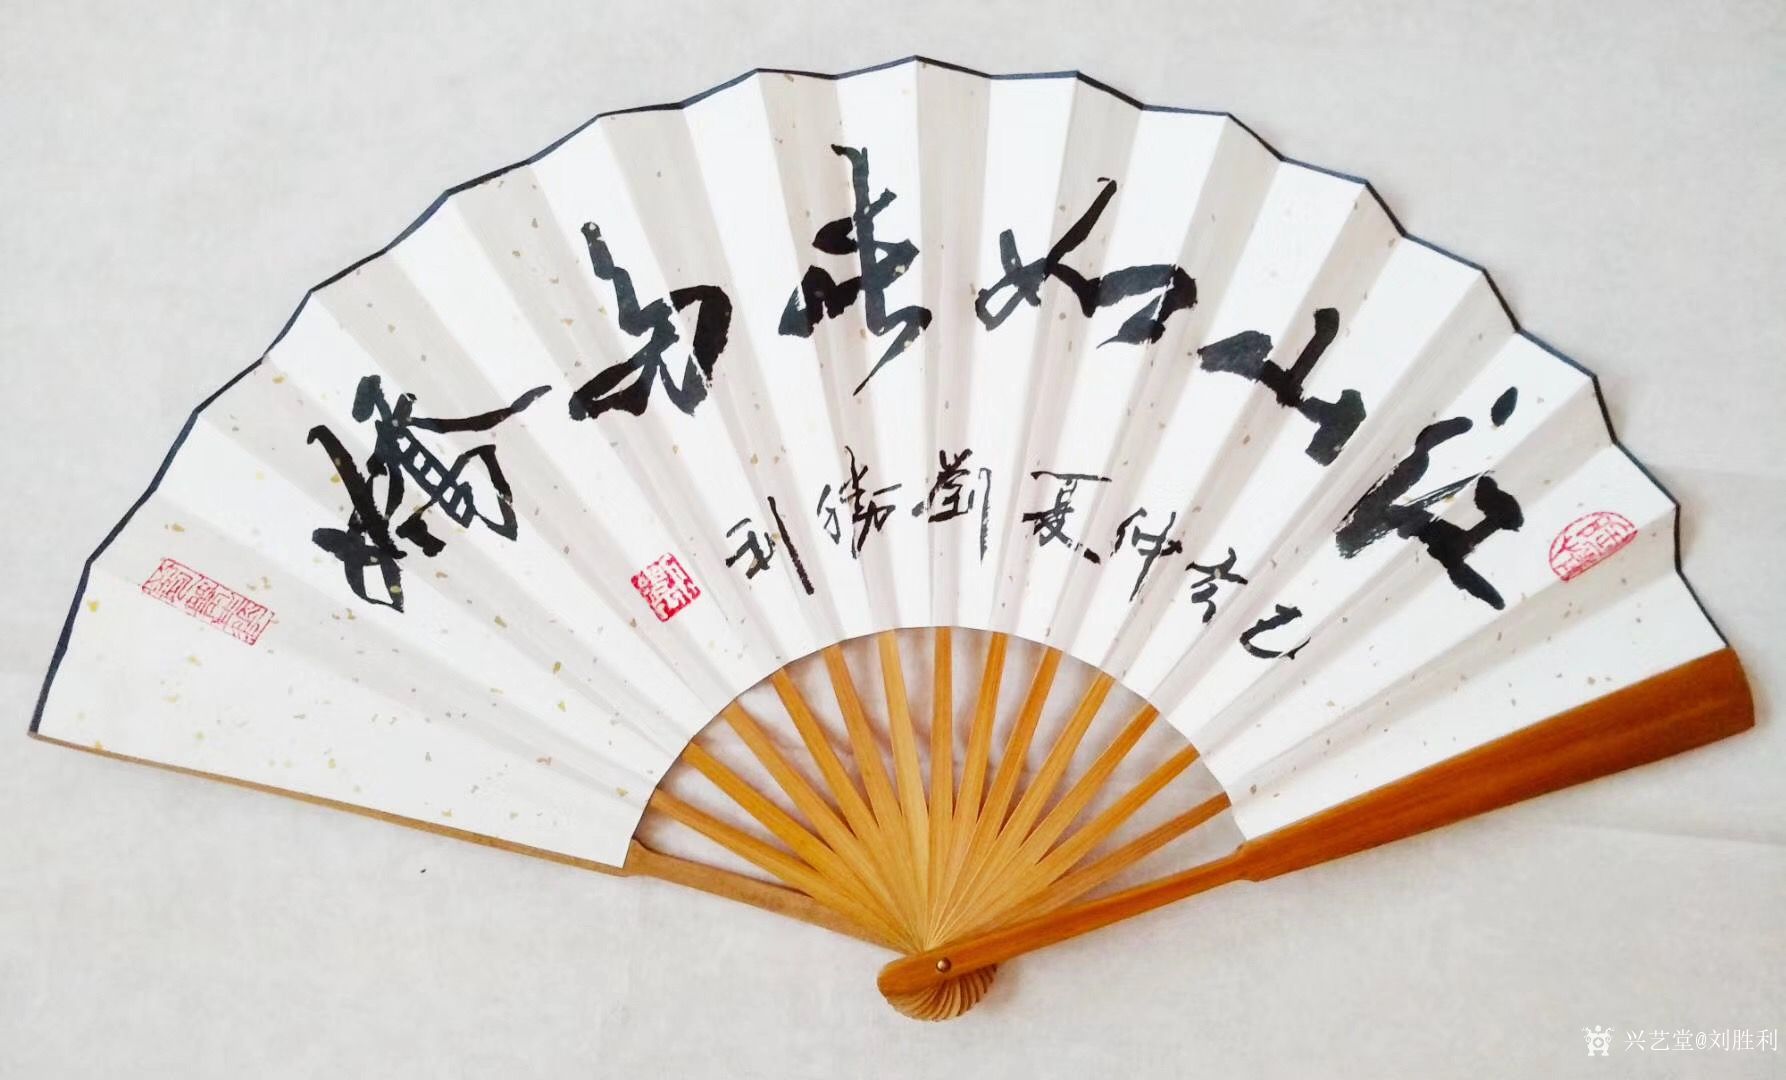 江山如此多嬌
己亥仲夏劉勝利
兴艺堂@刘胜利